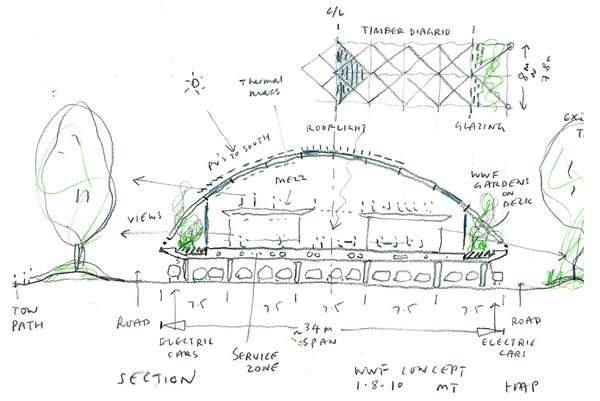 C/L
TIMBER DIAGRID
8m
7.8m
Thermal
mass
ROOFLIGHT
GLAZING
PV'S TO SOUTH
MEZZ
WWF
GARDENS
ON
DECK
VIEWS
TOW
PATH
ROAD
ELECTRIC
CARS
SERVICE
ZONE
7.5
7.5
7.5
7.5
~34M
SPAN
ROAD
ELECTRIC
CARS
SECTION
WWF CONCEPT
1.8.10 MT